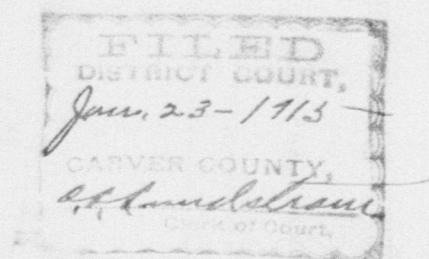 FILED
DISTRICT COURT,
Jan. 23 - 1913
CARVER COUNTY,
Clerk of Court.